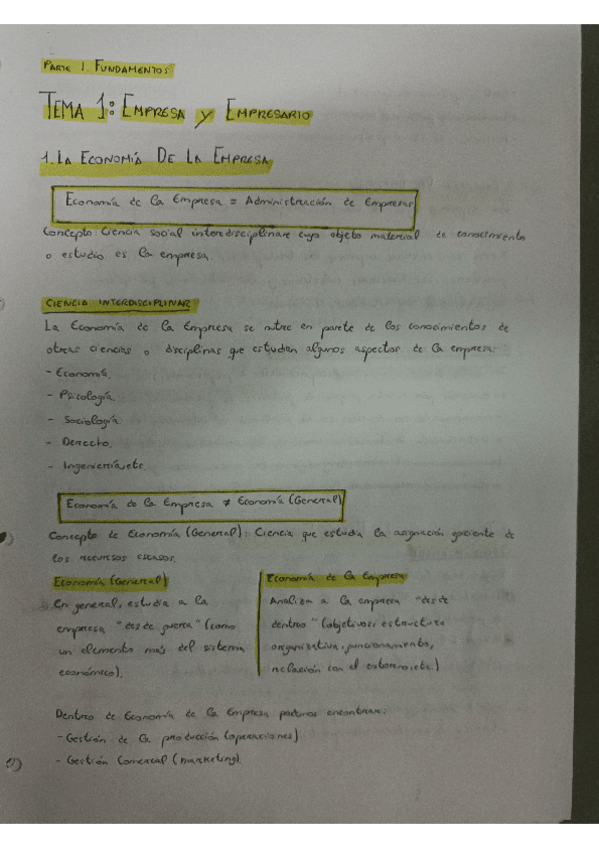 PARTE 1. FUNDAMENTOS
TEMA 1: EMPRESA y EMPRESARIO
1. LA ECONOMÍA DE LA EMPRESA
Economía de la Empresa = Administración de Empresas
Concepto: Ciencia social interdisciplinare cuyo objeto material de conocimiento
o estudio es la empresa.
CIENCIA INTERDISCIPLINAR
La Economía de la Empresa se nutre en parte de los conocimientos de
otras ciencias o disciplinas que estudian algunos aspectos de la empresa:
- Economía.
- Psicología.
- Sociología.
- Derecho.
- Ingeniería, etc.
Economía de la Empresa ≠ Economía (General)
Concepto de Economía (General): Ciencia que estudia la asignación eficiente de
los recursos escasos.
Economía (General)
En general, estudia a la
empresa "desde fuera" (como
un elemento más del sistema
económico).
Economía de la Empresa
Analiza a la empresa "desde
dentro" (objetivos, estructura
organizativa, funcionamiento,
relación con el entorno, etc.)
Dentro de Economía de la Empresa podemos encontrar:
- Gestión de la producción (operaciones)
- Gestión Comercial (marketing).